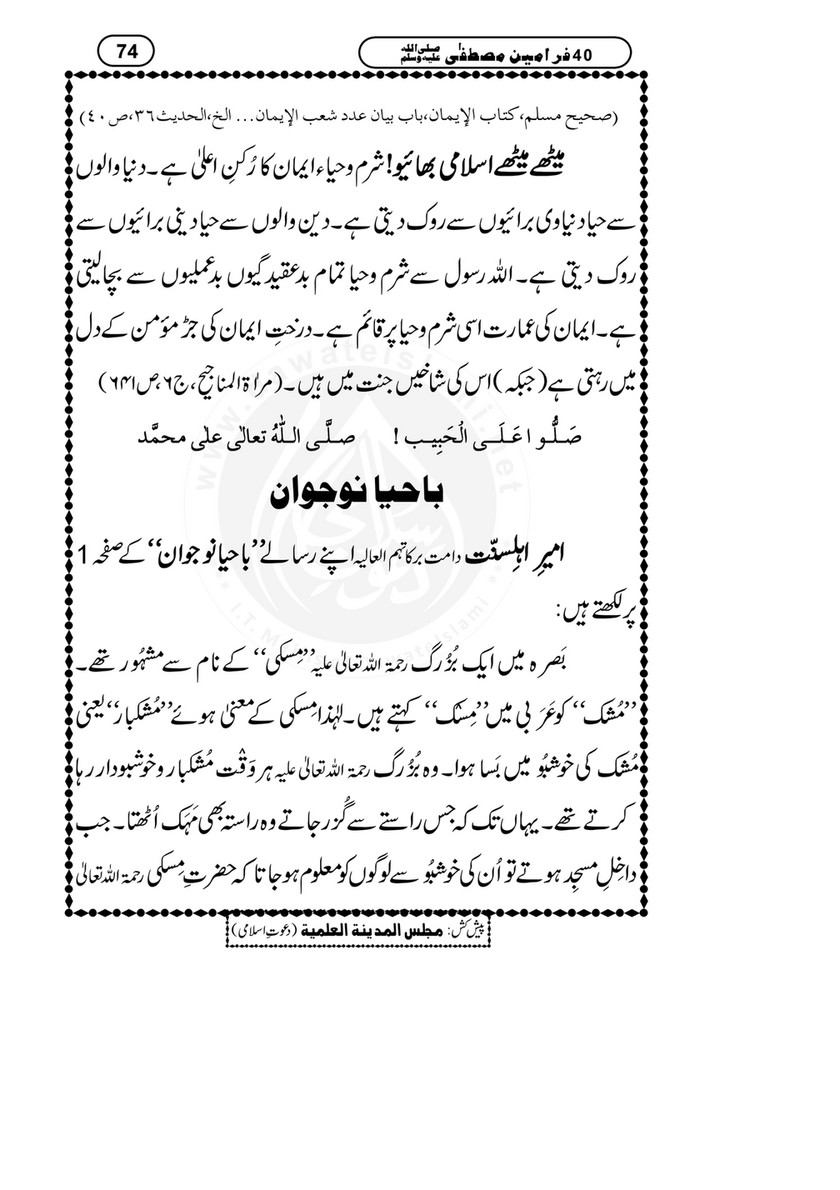 40 فرامین مصطفٰی صلی اللہ علیہ وسلم
74
(صحیح مسلم، کتاب الإیمان،باب بیان عدد شعب الإیمان... الخ،الحدیث۳٦،ص۴۰)
میٹھے میٹھے اسلامی بھائیو! شرم وحیاء ایمان کا رُکنِ اعلیٰ ہے۔ دنیا والوں
سے حیا دنیاوی برائیوں سے روک دیتی ہے۔ دین والوں سے حیا دینی برائیوں سے
روک دیتی ہے۔ اللہ رسول سے شرم وحیا تمام بدعقیدگیوں بدعملیوں سے بچالیتی
ہے۔ ایمان کی عمارت اسی شرم وحیا پر قائم ہے۔ درختِ ایمان کی جڑ مؤمن کے دل
میں رہتی ہے (جبکہ) اس کی شاخیں جنت میں ہیں۔ (مراٰۃ المناجیح، ج۶،ص۶۴۱)
صَلُّوا عَلَی الْحَبِیب ! صلَّی اللّٰہُ تعالٰی علٰی محمَّد
باحیا نوجوان
امیرِ اہلِسنّت دامت برکاتہم العالیہ اپنے رسالے ’’باحیا نوجوان‘‘ کے صفحہ 1
پر لکھتے ہیں:
بَصرہ میں ایک بُزُرگ رحمۃ اللہ تعالیٰ علیہ ’’مِسکی‘‘ کے نام سے مشہُور تھے۔
’’مُشک‘‘ کو عَرَبی میں ’’مِسْک‘‘ کہتے ہیں۔ لہٰذا مِسکی کے معنیٰ ہوئے ’’مُشکبار‘‘ یعنی
مُشک کی خوشبُو میں بَسا ہوا۔ وہ بُزُرگ رحمۃ اللہ تعالیٰ علیہ ہر وَقْت مُشکبار وخوشبودار رہا
کرتے تھے۔ یہاں تک کہ جس راستے سے گُزر جاتے وہ راستہ بھی مَہَک اُٹھتا۔ جب
داخِلِ مسجِد ہوتے تو اُن کی خوشبُو سے لوگوں کو معلوم ہو جاتا کہ حضرتِ مِسکی رحمۃ اللہ تعالیٰ
پیش کش: مجلس المدینۃ العلمیۃ (دعوتِ اسلامی)